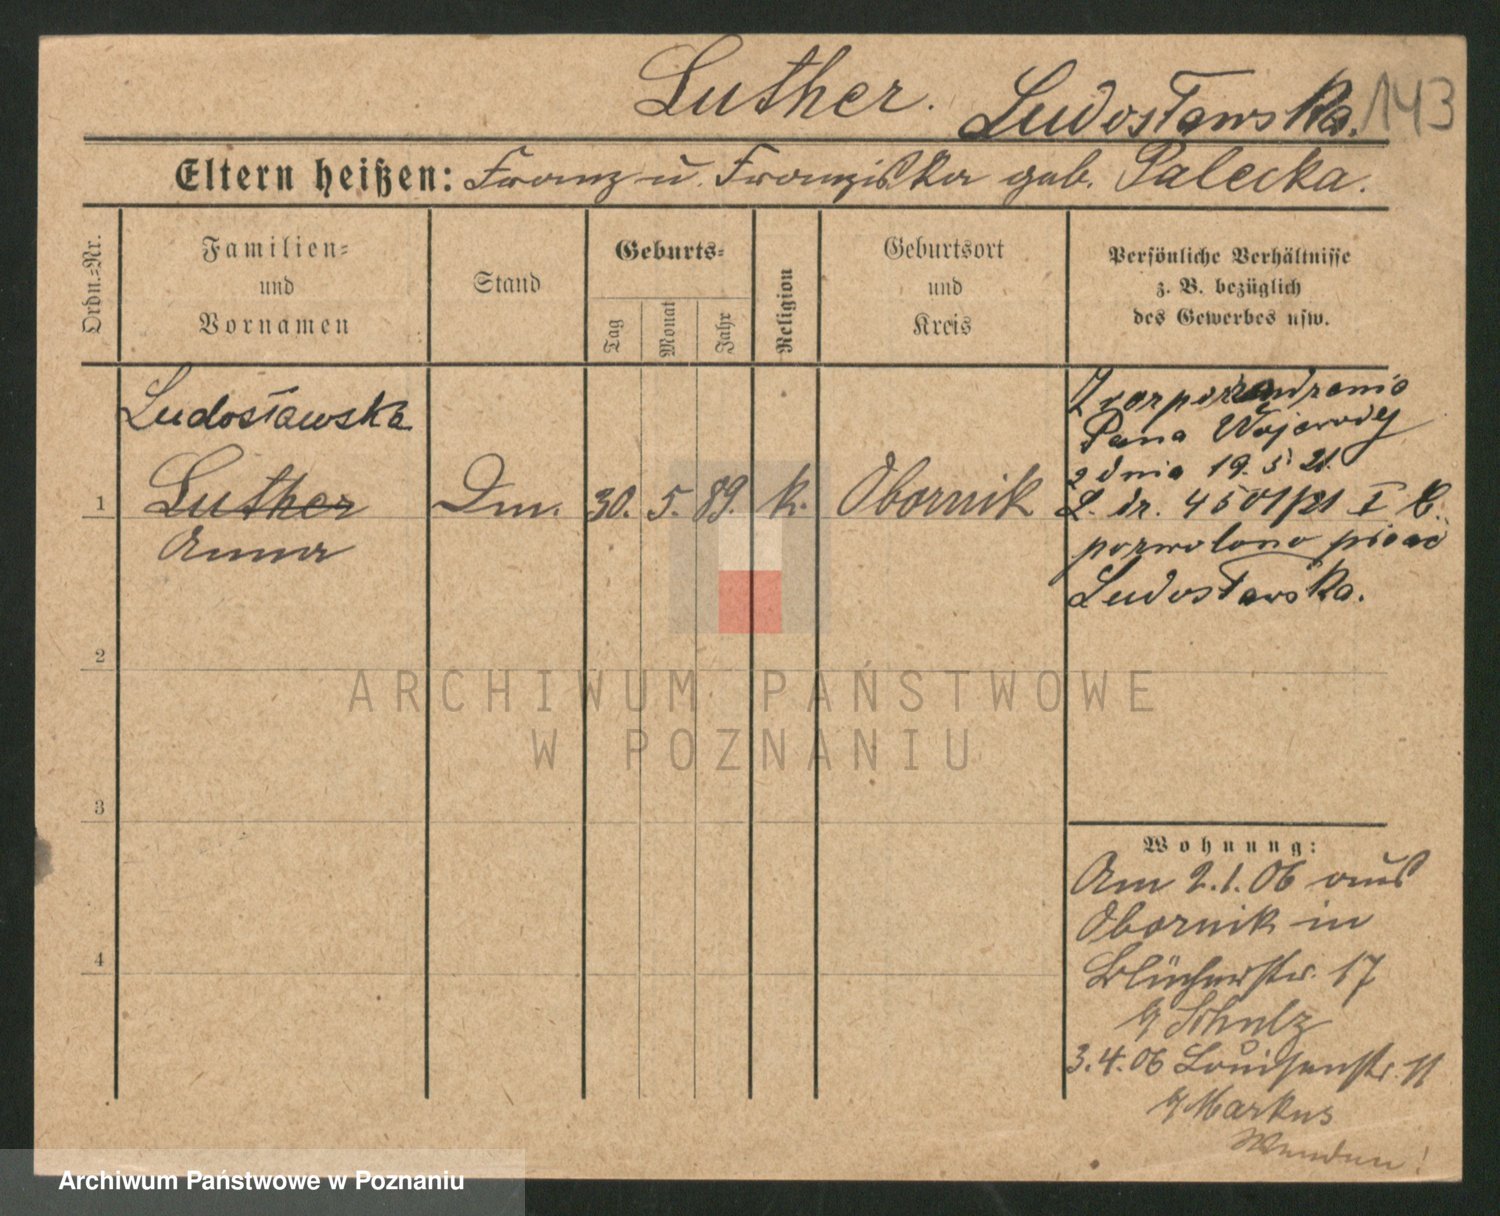 Luther. Ludosławska. 143
Eltern heißen: Franz u. Franziska geb. Palecka.
Ordn.=Nr.
Familien=
und
Vornamen
Stand
Geburts=
Tag
Monat
Jahr
Religion
Geburtsort
und
Kreis
Persönliche Verhältnisse
z. B. bezüglich
des Gewerbes usw.
Ludosławska
1 Luther Dm. 30. 5. 89. k. Obornik
Anna
Z rozporządzenia
Pana Wojewody
z dnia 19.5.21.
L. dz. 4501/21 I C.
pozwolono pisać
Ludosławska.
2
3
4
Wohnung:
Am 2.1.06 aus
Obornik in
Blücherstr. 17
b/ Schulz
3.4.06 Louisenstr. 11
b/ Markus
ARCHIWUM PAŃSTWOWE
W POZNANIU
Archiwum Państwowe w Poznaniu